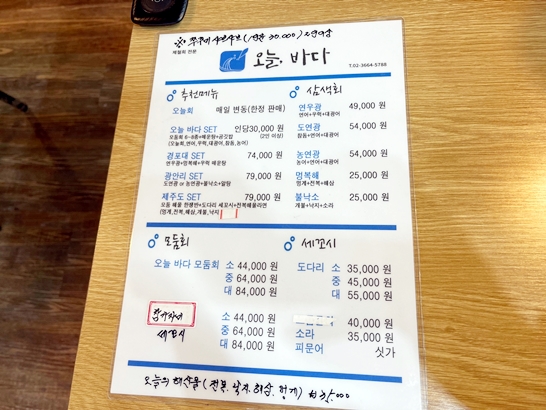 ※ 쭈꾸미 샤브샤브 (1인분 30,000) 2인이상
제철회 전문
오늘, 바다
T.02-3664-5788
추천메뉴
오늘회 매일 변동(한정 판매)
오늘 바다 SET 인당30,000 원
모둠회 6~8종+매운탕+공깃밥 (2인 이상)
(오늘회,연어,우럭,대광어,참돔,농어)
경포대 SET 74,000 원
연우광+멍복해+우럭 매운탕
광안리 SET 79,000 원
도연광 or 농연광+불낙소+알탕
제주도 SET 79,000 원
모둠 해물 한쟁반+도다리 세꼬시+전복해물라면
(멍게,전복,해삼,개불,낙지
삼색회
연우광 49,000 원
연어+우럭+대광어
도연광 54,000 원
참돔+연어+대광어
농연광 54,000 원
농어+연어+대광어
멍복해 25,000 원
멍게+전복+해삼
불낙소 25,000 원
개불+낙지+소라
모둠회
오늘 바다 모둠회 소 44,000 원
중 64,000 원
대 84,000 원
세꼬시
소 44,000 원
중 64,000 원
대 84,000 원
세꼬시
도다리 소 35,000 원
중 45,000 원
대 55,000 원
40,000 원
소라 35,000 원
피문어 싯가
오늘의 해산물 (전복, 낙지, 해삼, 멍게)